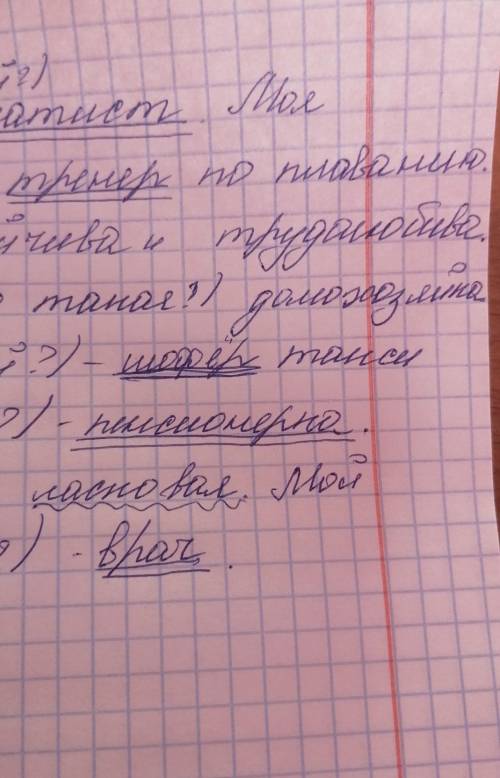 й?)
матист. Моя
тренер по плаванию.
йчива и трудолюбива.
такая?) домохозяйка
й?) - шофёр такси
?) - пенсионерка.
ласковая. Мой
) - врач.